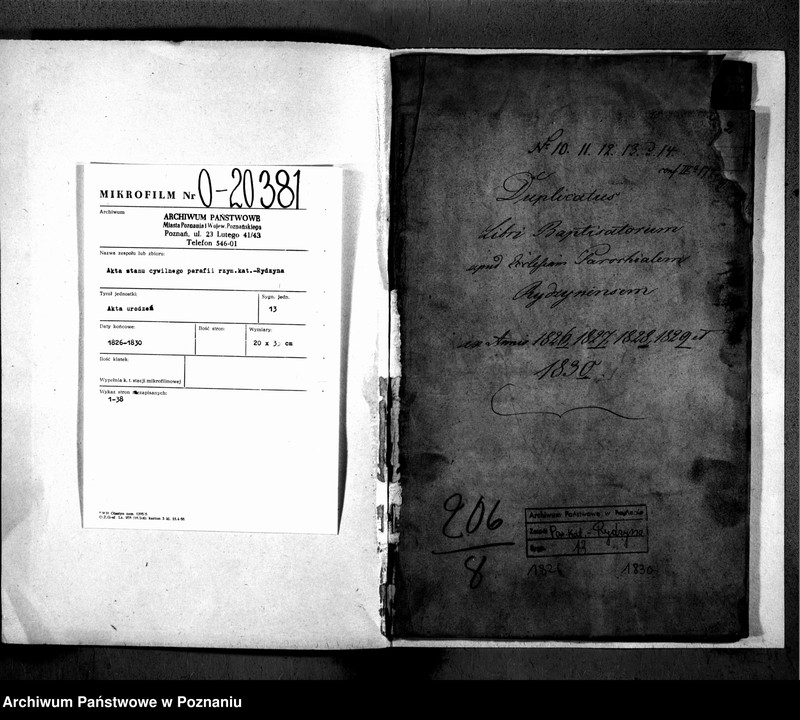 MIKROFILM Nr O-20381
Archiwum
ARCHIWUM PAŃSTWOWE
Miasta Poznania i Wojew. Poznańskiego
Poznań, ul. 23 Lutego 41/43
Telefon 546-01
Nazwa zespołu lub zbioru:
Akta stanu cywilnego parafii rzym.kat.-Rydzyna
Tytuł jednostki:
Sygn. jedn.
Akta urodzeń
13
Daty końcowe:
Ilość stron:
Wymiary:
1826-1830
20 x 3 cm
Ilość klatek:
Wypełnia k. t. stacji mikrofilmowej
Wykaz stron niezapisanych:
1-38
No 10. 11. 12. 13. & 14
Duplicatus
Libri Baptisatorum
apud Ecclesiam Parochialem
Rydzyninsem
ex Annis 1826, 1827, 1828, 1829 et
1830.
206
8
Archiwum Państwowe w Poznaniu
Zespół Par. Kat. - Rydzyna
Sygn. 13
1826 1830
Archiwum Państwowe w Poznaniu